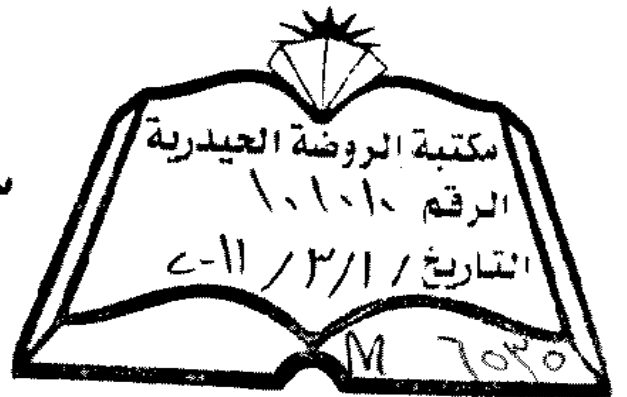 مكتبة الروضة الحيدرية
الرقم ١٠١٠١٠
التاريخ / ١ / ٣ / ٢٠١١
M ٦٥٣٥